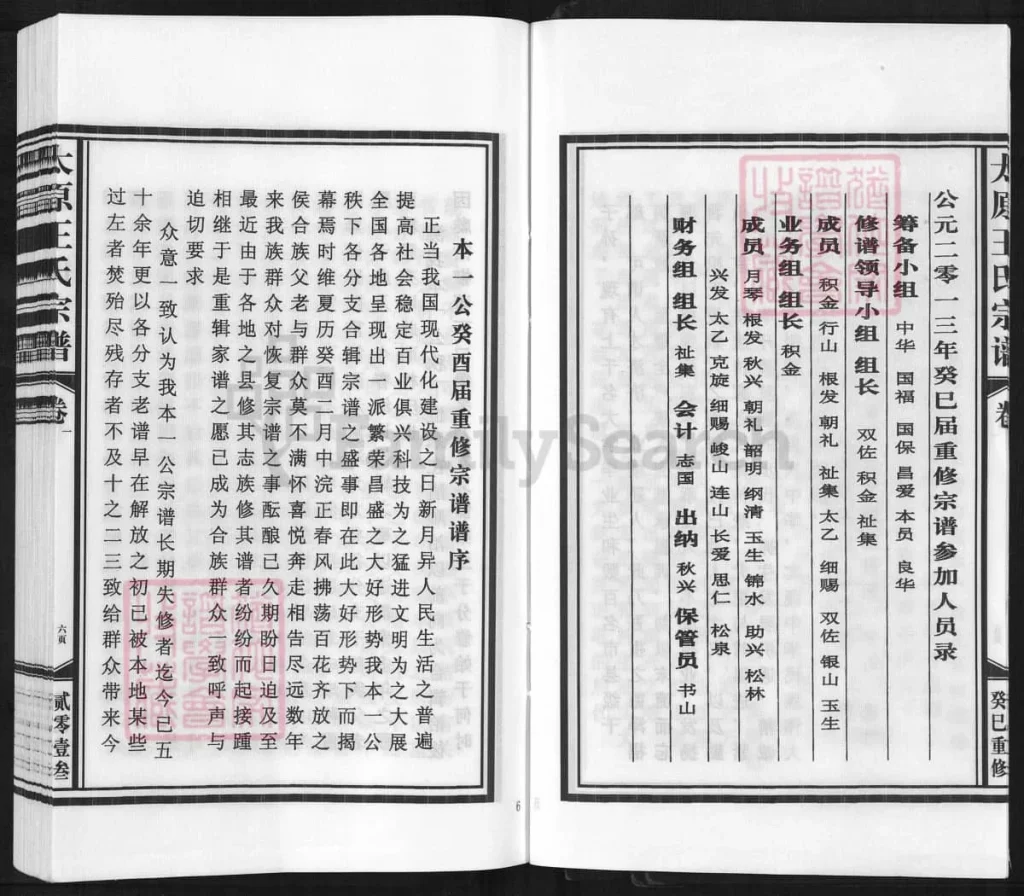 太原王氏宗谱
卷
癸巳重修
公元二零一三年癸巳届重修宗谱参加人员录
筹备小组 中华 国福 国保 昌爱 本员 良华
修谱领导小组 组长 双佐 积金 祉集
成员 积金 行山 根发 朝礼 祉集 太乙 细赐 双佐 银山 玉生
业务组 组长 积金
成员 月琴 根发 秋兴 朝礼 韶明 纲清 玉生 锦水 助兴 松林
兴发 太乙 克旋 细赐 峻山 连山 长爱 思仁 松泉
财务组 组长 祉集 会计 志国 出纳 秋兴 保管员 书山
本一公癸酉届重修宗谱谱序
正当我国现代化建设之日新月异人民生活之普遍
提高社会稳定百业俱兴科技为之猛进文明为之大展
全国各地呈现出一派繁荣昌盛之大好形势我本一公
秩下各分支合辑宗谱之盛事即在此大好形势下而揭
幕焉时维夏历癸酉二月中浣正春风拂荡百花齐放之
侯合族父老与群众莫不满怀喜悦奔走相告尽远数年
来我族群众对恢复宗谱之事酝酿已久期盼日迫及至
最近由于各地之县修其志族修其谱者纷纷而起接踵
相继于是重辑家谱之愿已成为合族群众一致呼声与
迫切要求
众意一致认为我本一公宗谱长期失修者迄今已五
十余年更以各分支老谱早在解放之初已被本地某些
过左者焚殆尽残存者不及十之二三致给群众带来今
太原王氏宗谱
卷一
六页
贰零壹叁
6
8
FamilySearch